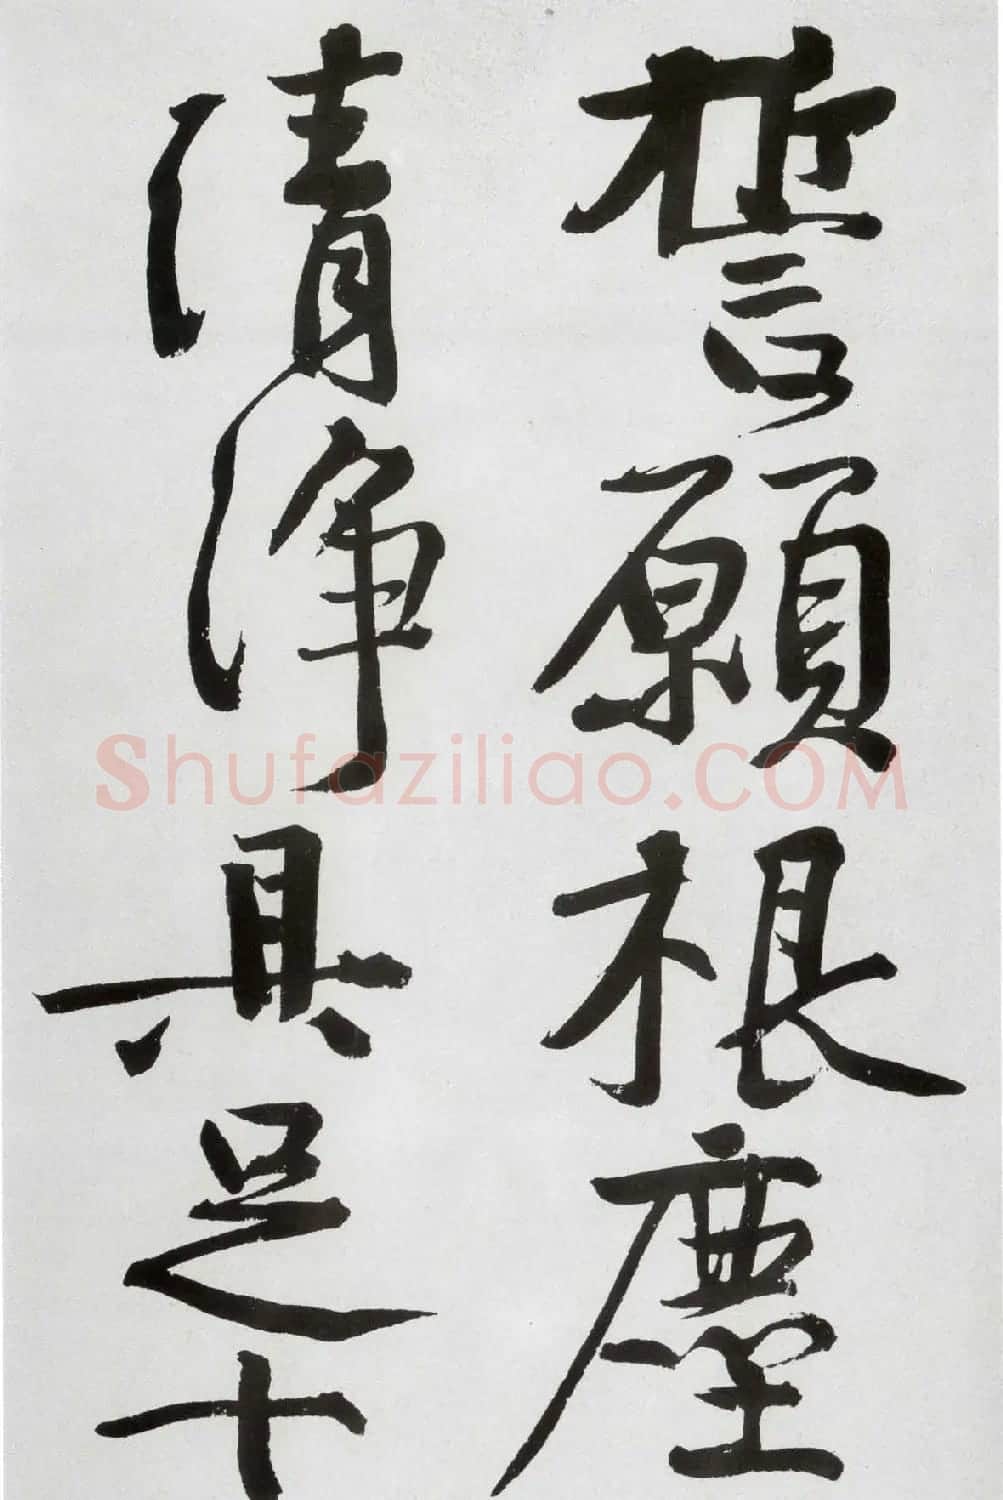 誓願根塵
清浄具足十
Shufaziliao.COM